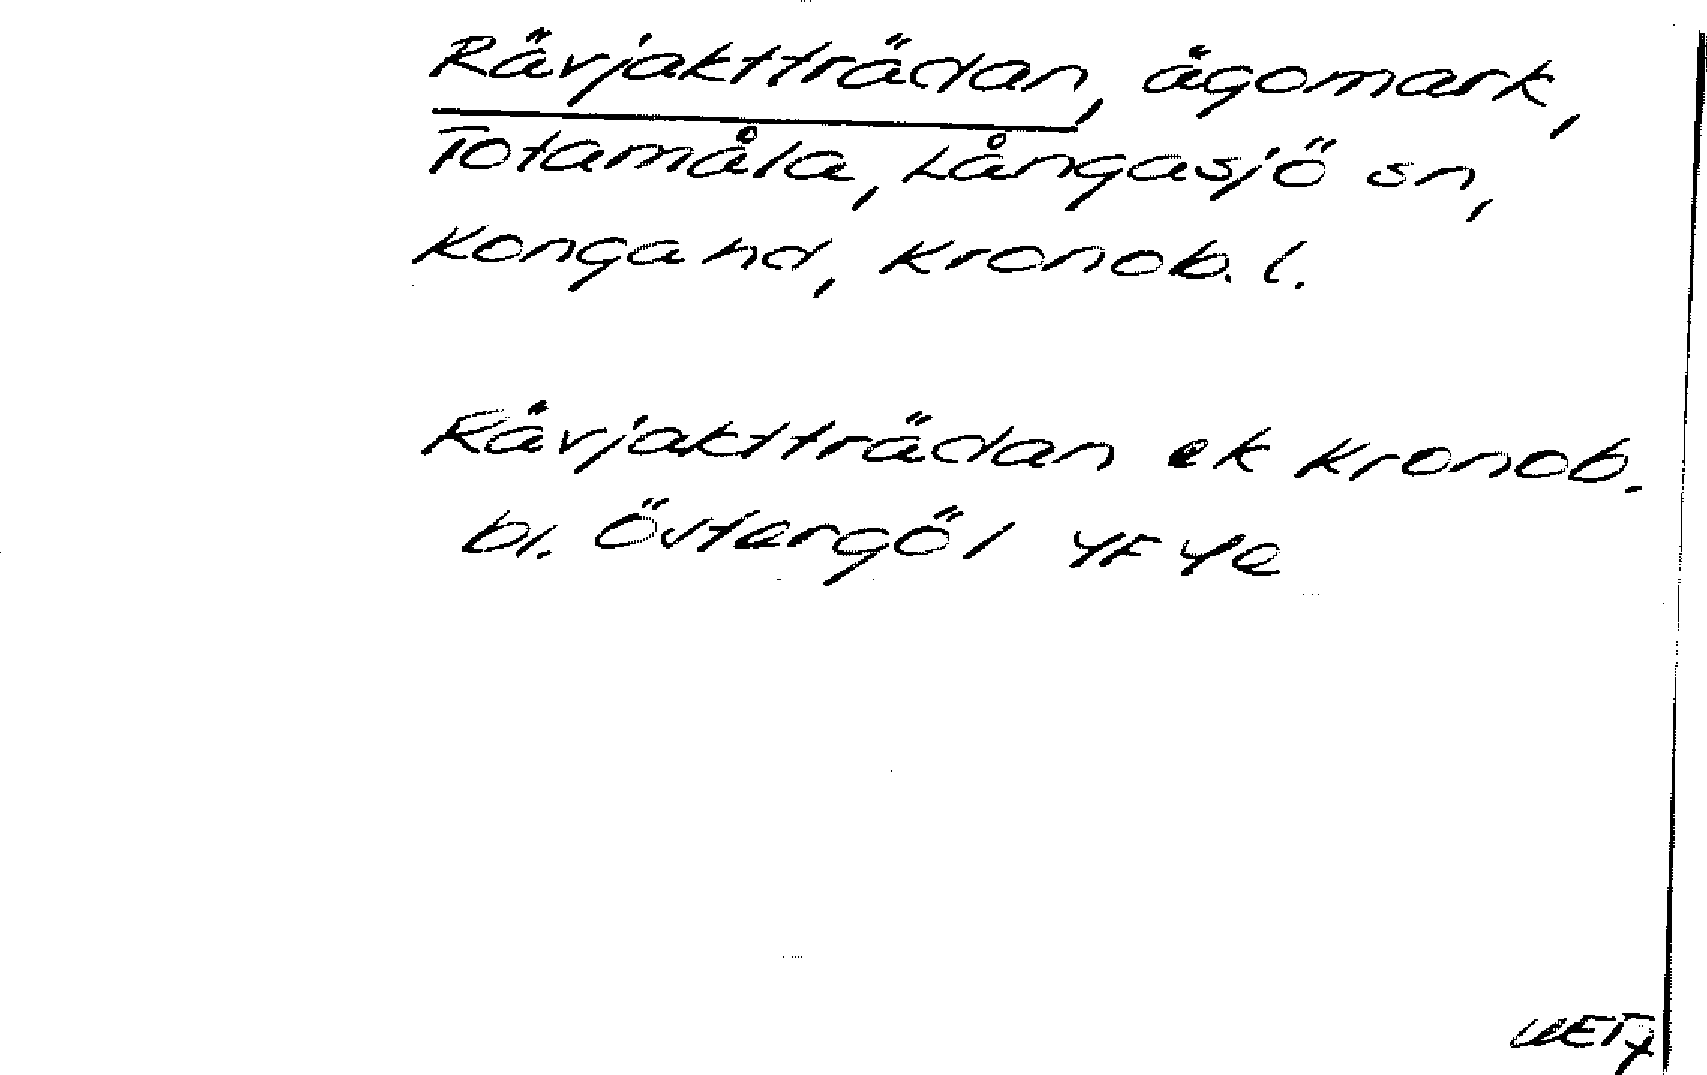 Rävjaktträdan, ägomark,
Totamåla, Långasjö sn,
Konga hd, Kronob. l.
Rävjaktträdan ek Kronob.
bl. Östergöl 4F 4e